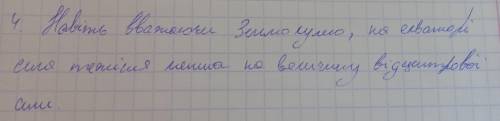 4. Навіть вважаючи Землю кулею, на екваторі
сила тяжіння менша на величину відцентрової
сили.